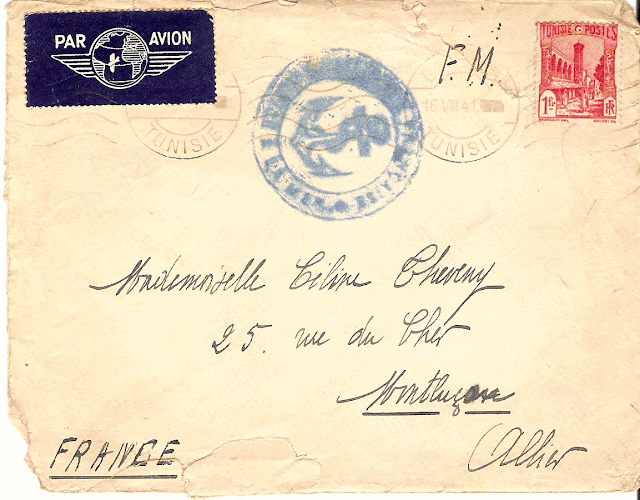 PAR AVION
F. M.
TUNISIE POSTES
1F. RF
TUNISIE
16 VIII 41
TUNISIE
Mademoiselle Céline Cheveny
25. rue du Cher
Montluçon
Allier
FRANCE